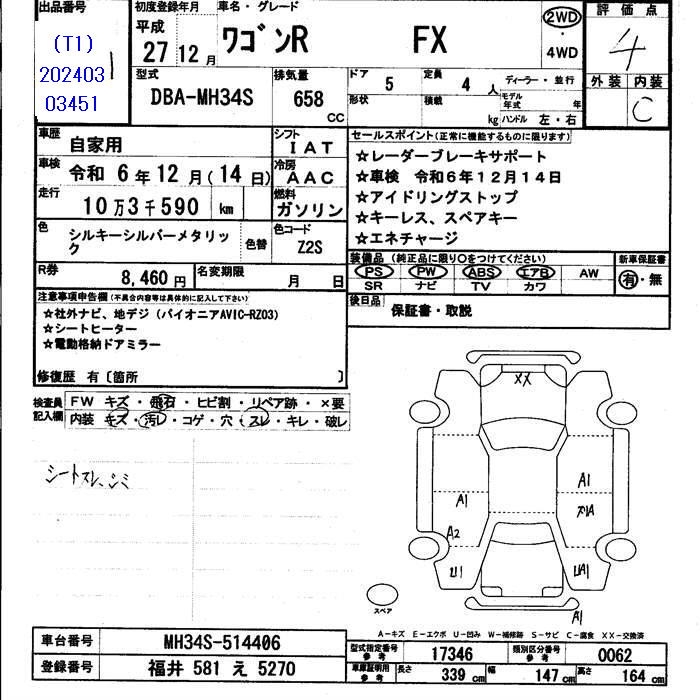 出品番号
(T1)
202403
03451
1
初度登録年月
平成
27 12 月
車名・グレード
ワゴンR FX
2WD
・
4WD
評価点
4
外装 内装
C
型式
DBA-MH34S
排気量
658
CC
ドア 5
定員 4 人
ディーラー・並行
形状
積載
kg
モデル年式
年
ハンドル 左・右
車歴
自家用
シフト
IAT
車検
令和 6年 12月(14日)
冷房
AAC
走行
10万3千590 km
燃料
ガソリン
色
シルキーシルバーメタリック
色替
色コード
Z2S
R券
8,460 円
名変期限
月 日
セールスポイント(正常に機能するものに限ります)
☆レーダーブレーキサポート
☆車検 令和6年12月14日
☆アイドリングストップ
☆キーレス、スペアキー
☆エネチャージ
装備品 (純正品に限り○をつけてください)
PS PW ABS エアB AW
SR ナビ TV カワ
新車保証書
有・無
後日品
保証書・取説
注意事項申告欄(不具合内容等は具体的に記入して下さい)
☆社外ナビ、地デジ(パイオニアAVIC-RZ03)
☆シートヒーター
☆電動格納ドアミラー
修復歴 有〔箇所 〕
検査員
記入欄
FW キズ・飛石・ヒビ割・リペア跡・×要
内装 キズ・汚レ・コゲ・穴・スレ・キレ・破レ
シートスレ、シミ
XX
A1
A1
A2
U1
UA1
A1
スペア
A-キズ E-エクボ U-凹み W-補修跡 S-サビ C-腐食 XX-交換済
車台番号
MH34S-514406
登録番号
福井 581 え 5270
型式指定番号
参考
17346
類別区分番号
参考
0062
車庫証明用
参考
長さ 339 cm
幅 147 cm
高さ 164 cm